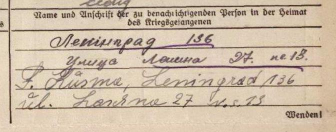 Name und Anschrift der zu benachrichtigenden Person in der Heimat
des Kriegsgefangenen
Ленинград 136
Улица Ленина 27. кв 13.
Leningrad 136
ul. Lenina 27
Wenden!